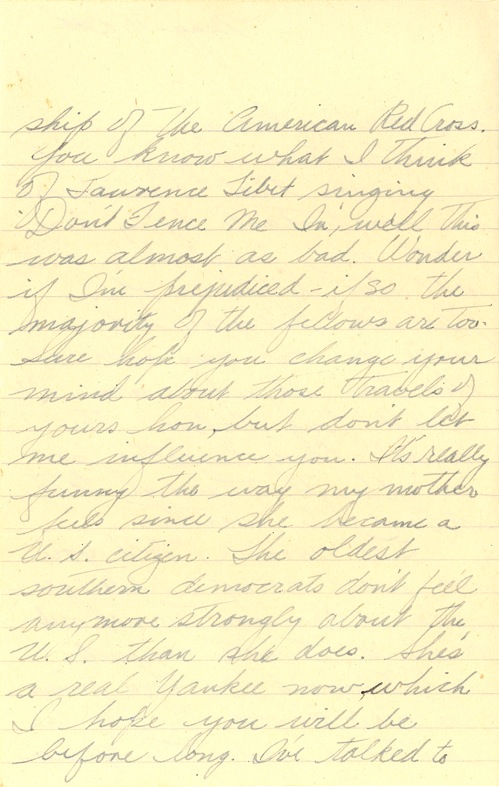 ship of the American Red Cross.
You know what I think
of Lawrence Tibet singing
"Don't Fence Me In", well this
was almost as bad. Wonder
if I'm prejudiced - if so the
majority of the fellows are too.
Sure hope you change your
mind about those travels of
yours hon, but don't let
me influence you. It's really
funny the way my mother
feels since she became a
U.S. citizen. The oldest
southern democrats don't feel
anymore strongly about the
U.S. than she does. She's
a real Yankee now, which
I hope you will be
before long. I've talked to